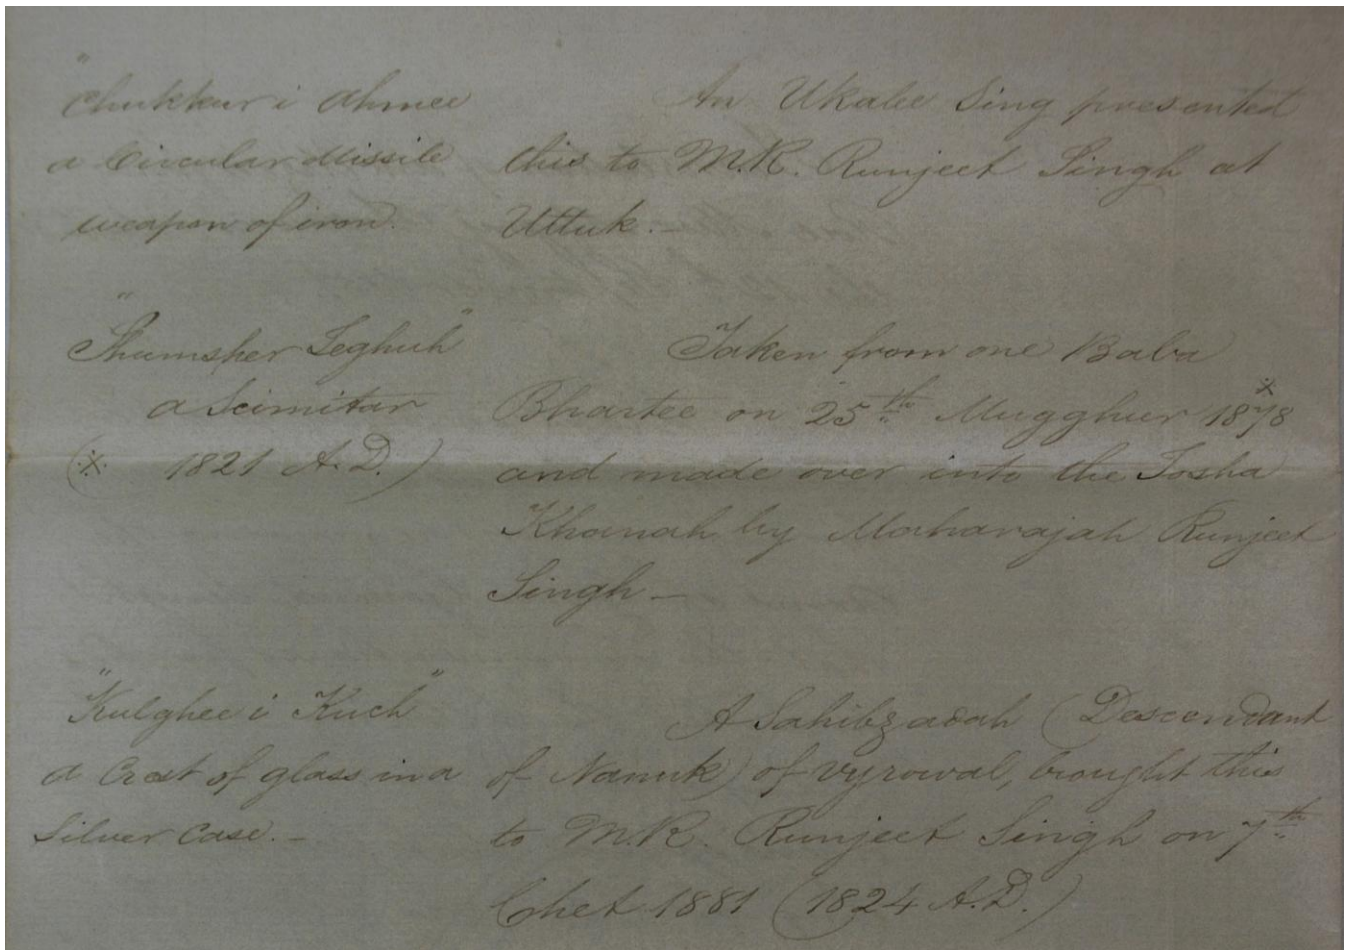 "Chukkur i Ahnee
a Circular Missile
weapon of iron.
An Ukalee Sing presented
this to M.R. Runjeet Singh at
Uttuk.—
"Shumsher Teghuh"
a Scimitar
(※ 1821 A.D.)
Taken from one Baba
Bhartee on 25th Mugghur 1878※
and made over into the Tosha
Khanah by Maharajah Runjeet
Singh—
"Kulghee i Kuch"
a Crest of glass in a
Silver Case.—
A Sahibzadah (Descendant
of Nanuk) of Vyrowal, brought this
to M.R. Runjeet Singh on 7th
Chet 1881 (1824 A.D.)